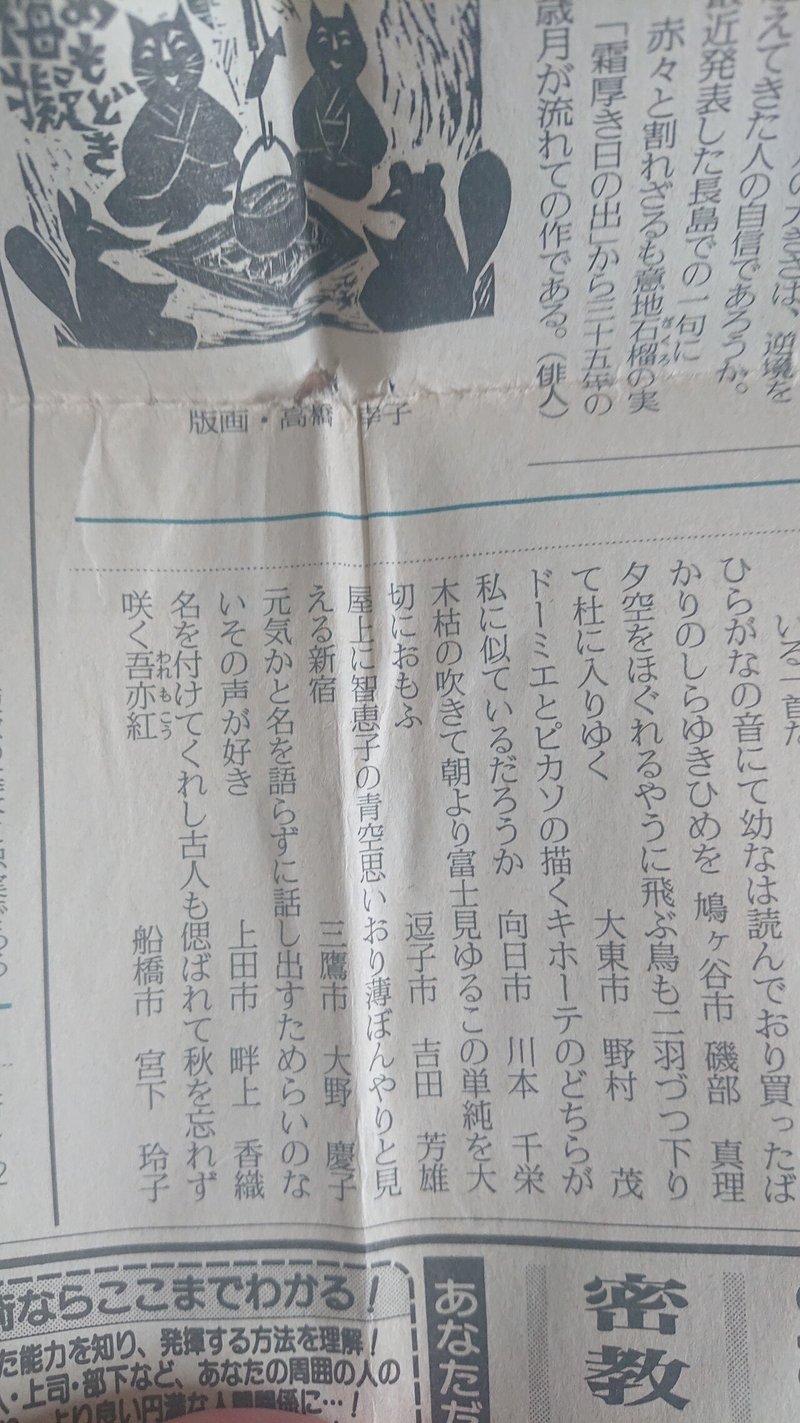 えてきた人の自信であろうか。
最近発表した長島での一句に
赤々と割れざるも意地石榴の実
ざくろ
「霜厚き日の出」から三十五年の
歳月が流れての作である。（俳人）
版画・高橋 幸子
いる一首だ
ひらがなの音にて幼なは読んでおり買ったば
かりのしらゆきひめを 鳩ヶ谷市 磯部 真理
夕空をほぐれるやうに飛ぶ鳥も二羽づつ下り
て杜に入りゆく 大東市 野村 茂
ドーミエとピカソの描くキホーテのどちらが
私に似ているだろうか 向日市 川本 千栄
木枯の吹きて朝より富士見ゆるこの単純を大
切におもふ 逗子市 吉田 芳雄
屋上に智恵子の青空思いおり薄ぼんやりと見
える新宿 三鷹市 大野 慶子
元気かと名を語らずに話し出すためらいのな
いその声が好き 上田市 畔上 香織
名を付けてくれし古人も偲ばれて秋を忘れず
咲く吾亦紅 船橋市 宮下 玲子
われもこう
密教
あなただ
ならここまでわかる！
た能力を知り、発揮する方法を理解！
人・上司・部下など、あなたの周囲の人の
より良い円満な人間関係に…！